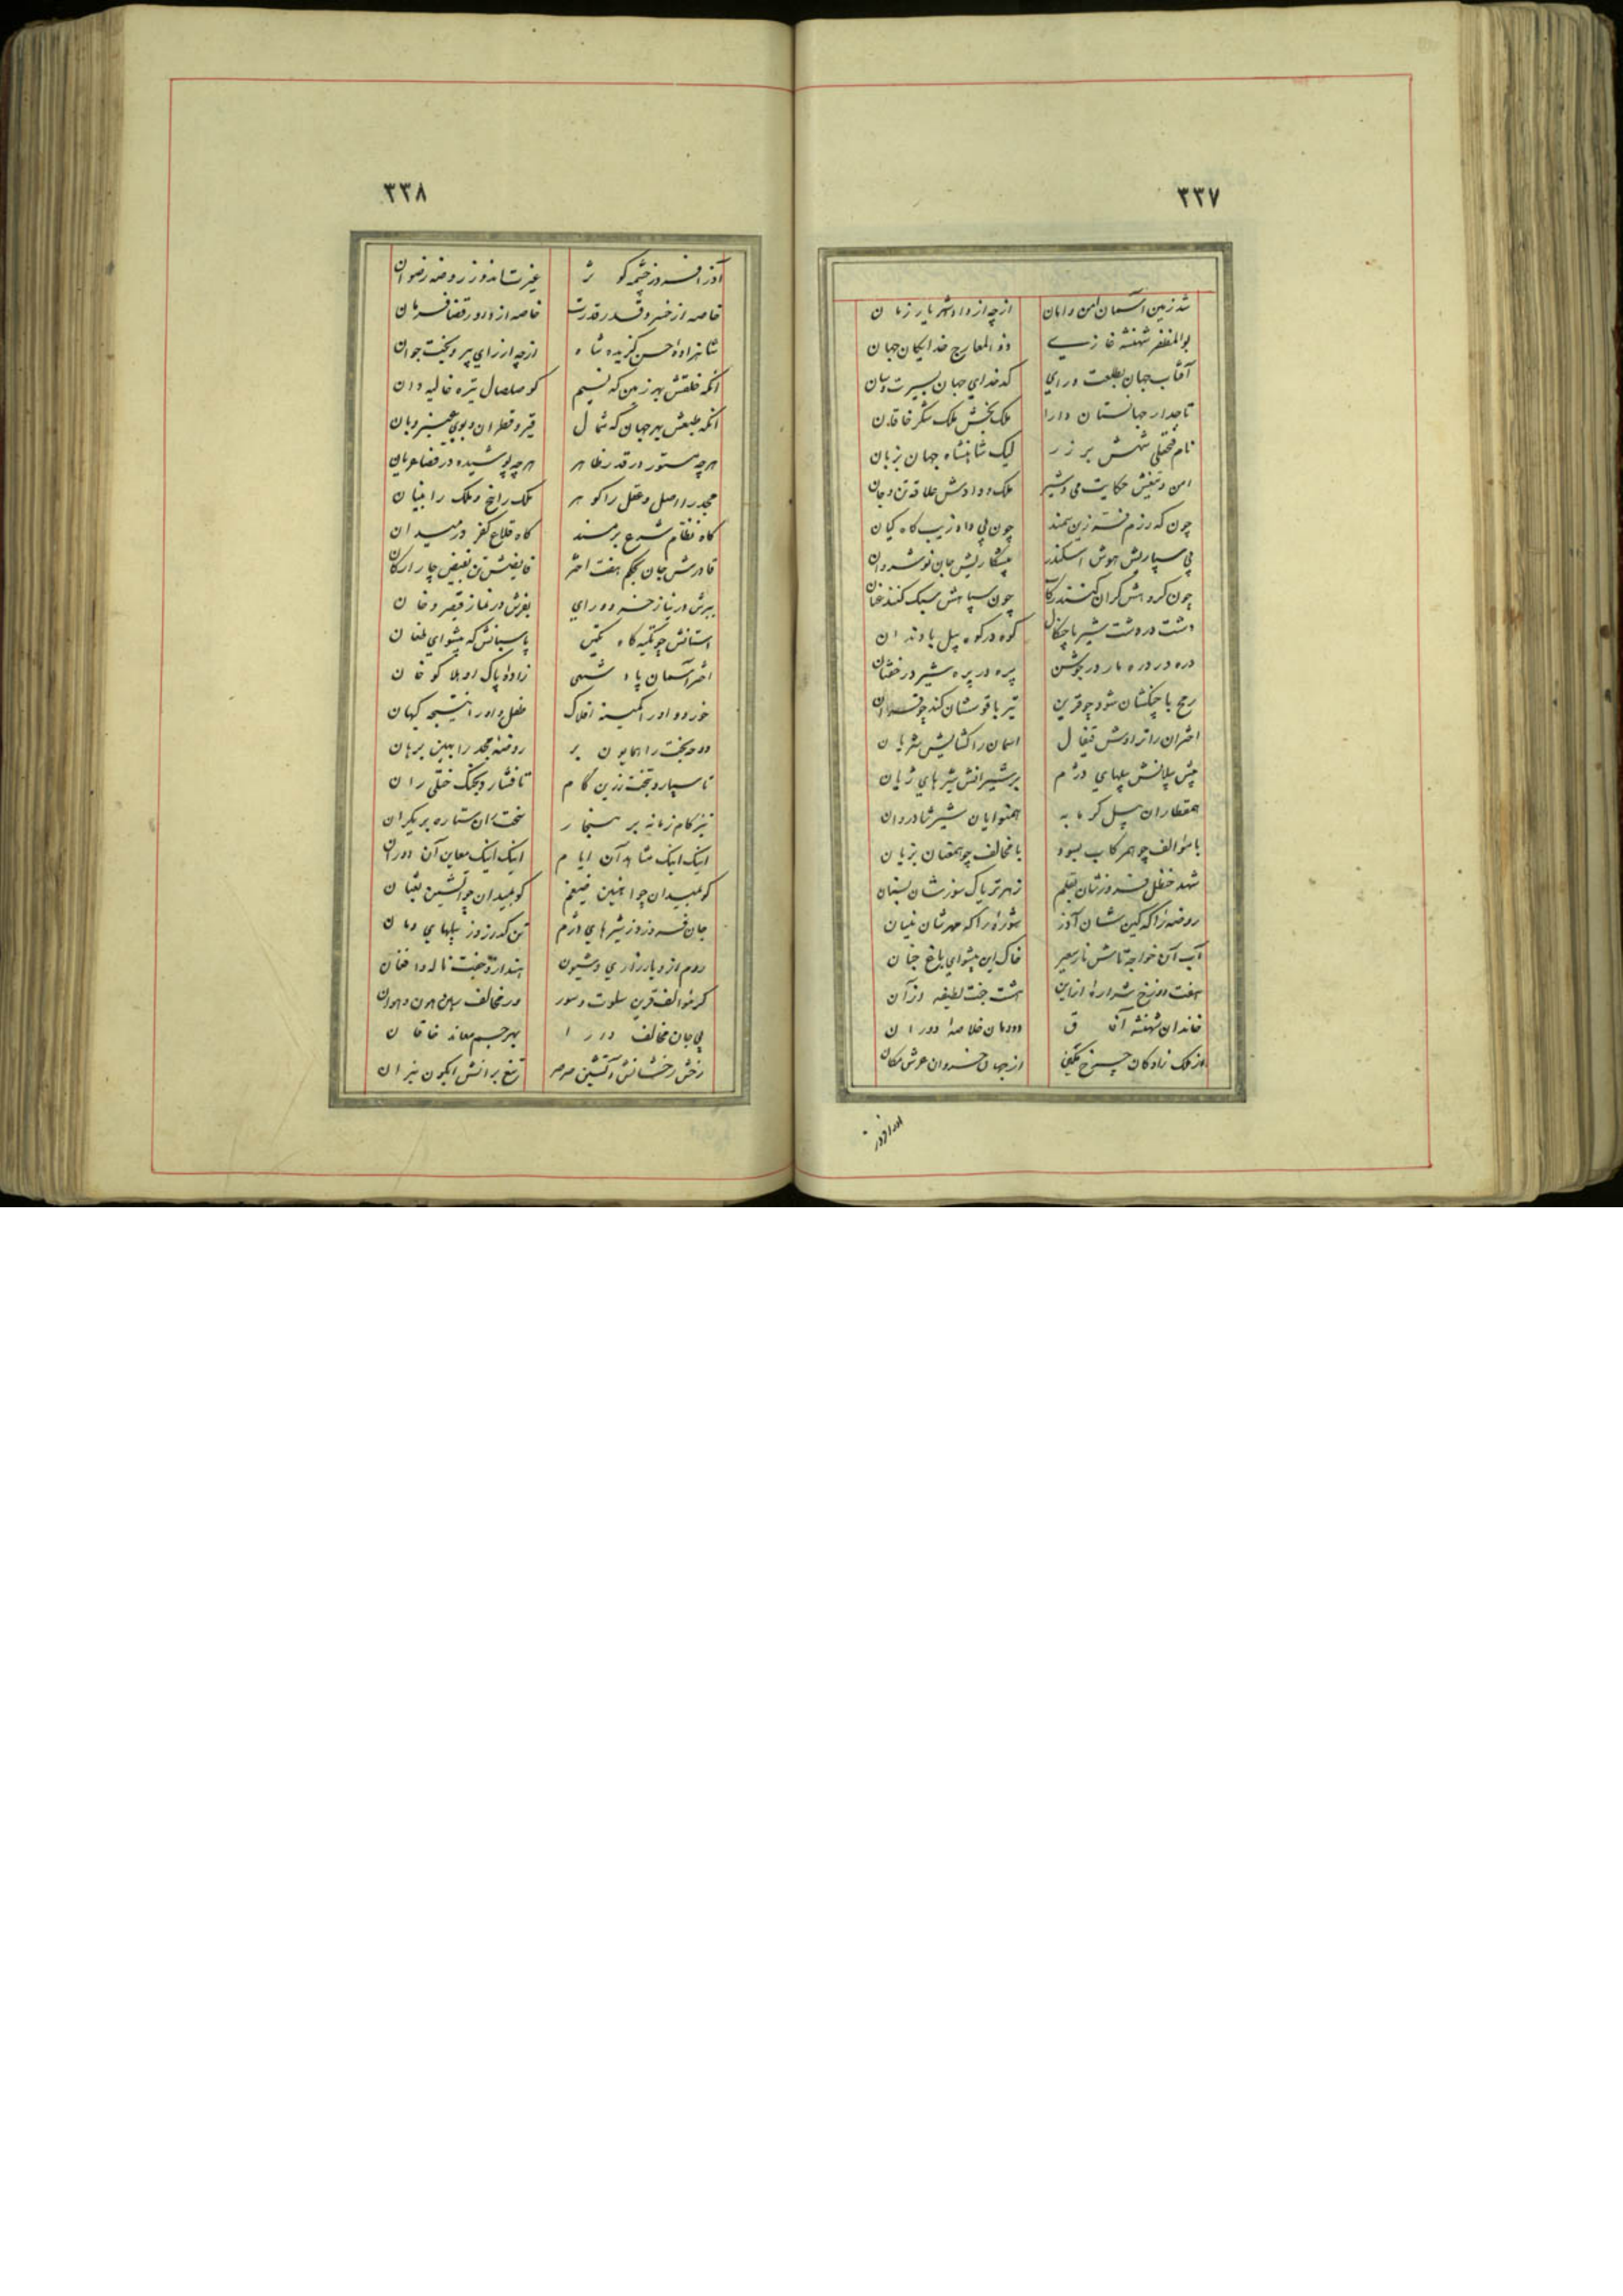 ۳۳۷
شد زمین آسمان امن و امان ازچه از داد شهریار زمان
بوالمظفر شهنشه غازی ذو المعارج خدایگان جهان
آفتاب جهان بطلعت و رای کدخدای جهان بسیرت و سان
تاجدار جهانستان دارا ملک بخش ملک شکر خاقان
نام فتحعلی شهش بر زر لیک شاهنشاه جهان بزبان
امن و تیغش حکایت می و شیر ملک و دادش علاقه تن و جان
چون که رزم فتنه زین سمند چون پی داد زیب گاه کیان
پی سپاریش هوش اسکندر پیشکاریش جان نوشروان
چون گروهش گران کنند رکاب چون سپاهش سبک کنند عنان
دشت در دشت شیر با چنگال کوه در کوه پیل با دندان
دره در دره مار در جوشن پره در پره شیر در خفتان
رمح با چنگشان شود چو قرین تیر با قوسشان کند چو قران
اختران را تراوش قیفال آسمان را گشایش شریان
پیش پیلانش پیلهای دژم بر شیرانش شیرهای ژیان
همقطاران پیل گرمابه همنوایان شیر شادروان
با مؤالف چو همرکاب بسود با مخالف چو همعنان بزیان
شهد حنظل فروزشان بقلم زهر تریاک سوزشان ببنان
روضه زا که کین شان آذر شوره را که مهرشان نیسان
آب آن خواجه تاش نار سعیر خاک این پیشوای باغ جنان
هفت دوزخ شراره از این هشت جنت لطیفه از آن
خاندان شهنشه آفاق دودمان خلاصه دوران
از ملک زادگان چرخ نگین از جهان خسروان عرش مکان
۳۳۸
آذر افروز چشمه کوثر غیرت اندوز روضه رضوان
خاصه از خسرو قدر قدرت خاصه از داور قضا فرمان
شاهزاده احسن گزیده شاه ازچه از رای پیر و بخت جوان
آنکه خلقش بهر زمین که نسیم گو صلصال تیره غالیه دان
آنکه طبعش بهر جهان که شمال قیر و قطران و بوی عنبر و بان
هرچه مستور در قدر ظاهر هرچه پوشیده در قضا عریان
مجد را اصل و عقل را گوهر ملک را نخ و ملک را بنیان
گاه نظام شرع بر مسند گاه قلاع کفر در میدان
قادرش جان بحکم هفت اختر فایضش تن بفیض چار ارکان
ببرش در نیاز خسرو و رای بفرش در نماز قیصر و خان
آستانش چو تکیه گاه تکین پاسبانش که پیشوای طغان
اختر آسمان پادشهی زاده پاک
خور دو اور کمینه افلاک طفل داور نتیجه کیهان
دوحه بخت را همایون بر روضه مجد را بهین برهان
تا سپارد بتخت زرین گام تا فشارد بجنگ ختلی ران
تیز گام زمانه بر هنجار سخت ران ستاره بر یکران
اینک اینک مشاهد آن ایام اینک اینک معاین آن دوران
کو بمیدان چو آهنین ضیغم کو بمیدان چو آتشین ثعبان
جان فروزد ز شیرهای دژم تن گدازد ز پیلهای دمان
روم از او یار زاری و شیون هند از او جفت ناله و افغان
گر مؤالف قرین سلوت و سور ور مخالف رهین هون و هوان
پی جان مخالف دارا بهر جسم معاند خاقان
رخش رخشانش آتشین صرصر تیغ برانش آبگون نیران
آذر افروز